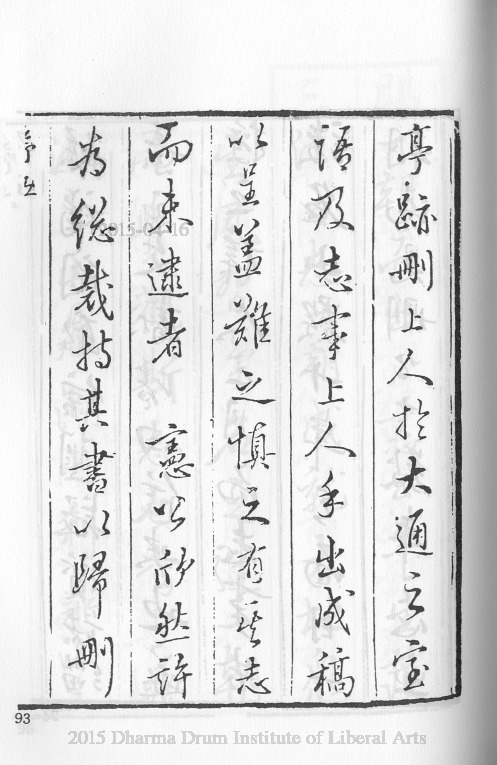 亭跡刪上人於大通之室
語及志事上人手出成稿
以呈蓋難之慎之有其志
而未逮者 憲公欣然許
為總裁持其書以歸刪
序五
93
2015 Dharma Drum Institute of Liberal Arts